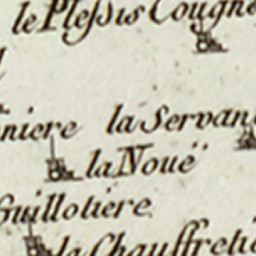 le Pleſsis Cougne
niere la Servan
la Noüe
Guillotiere
la Chauffretie